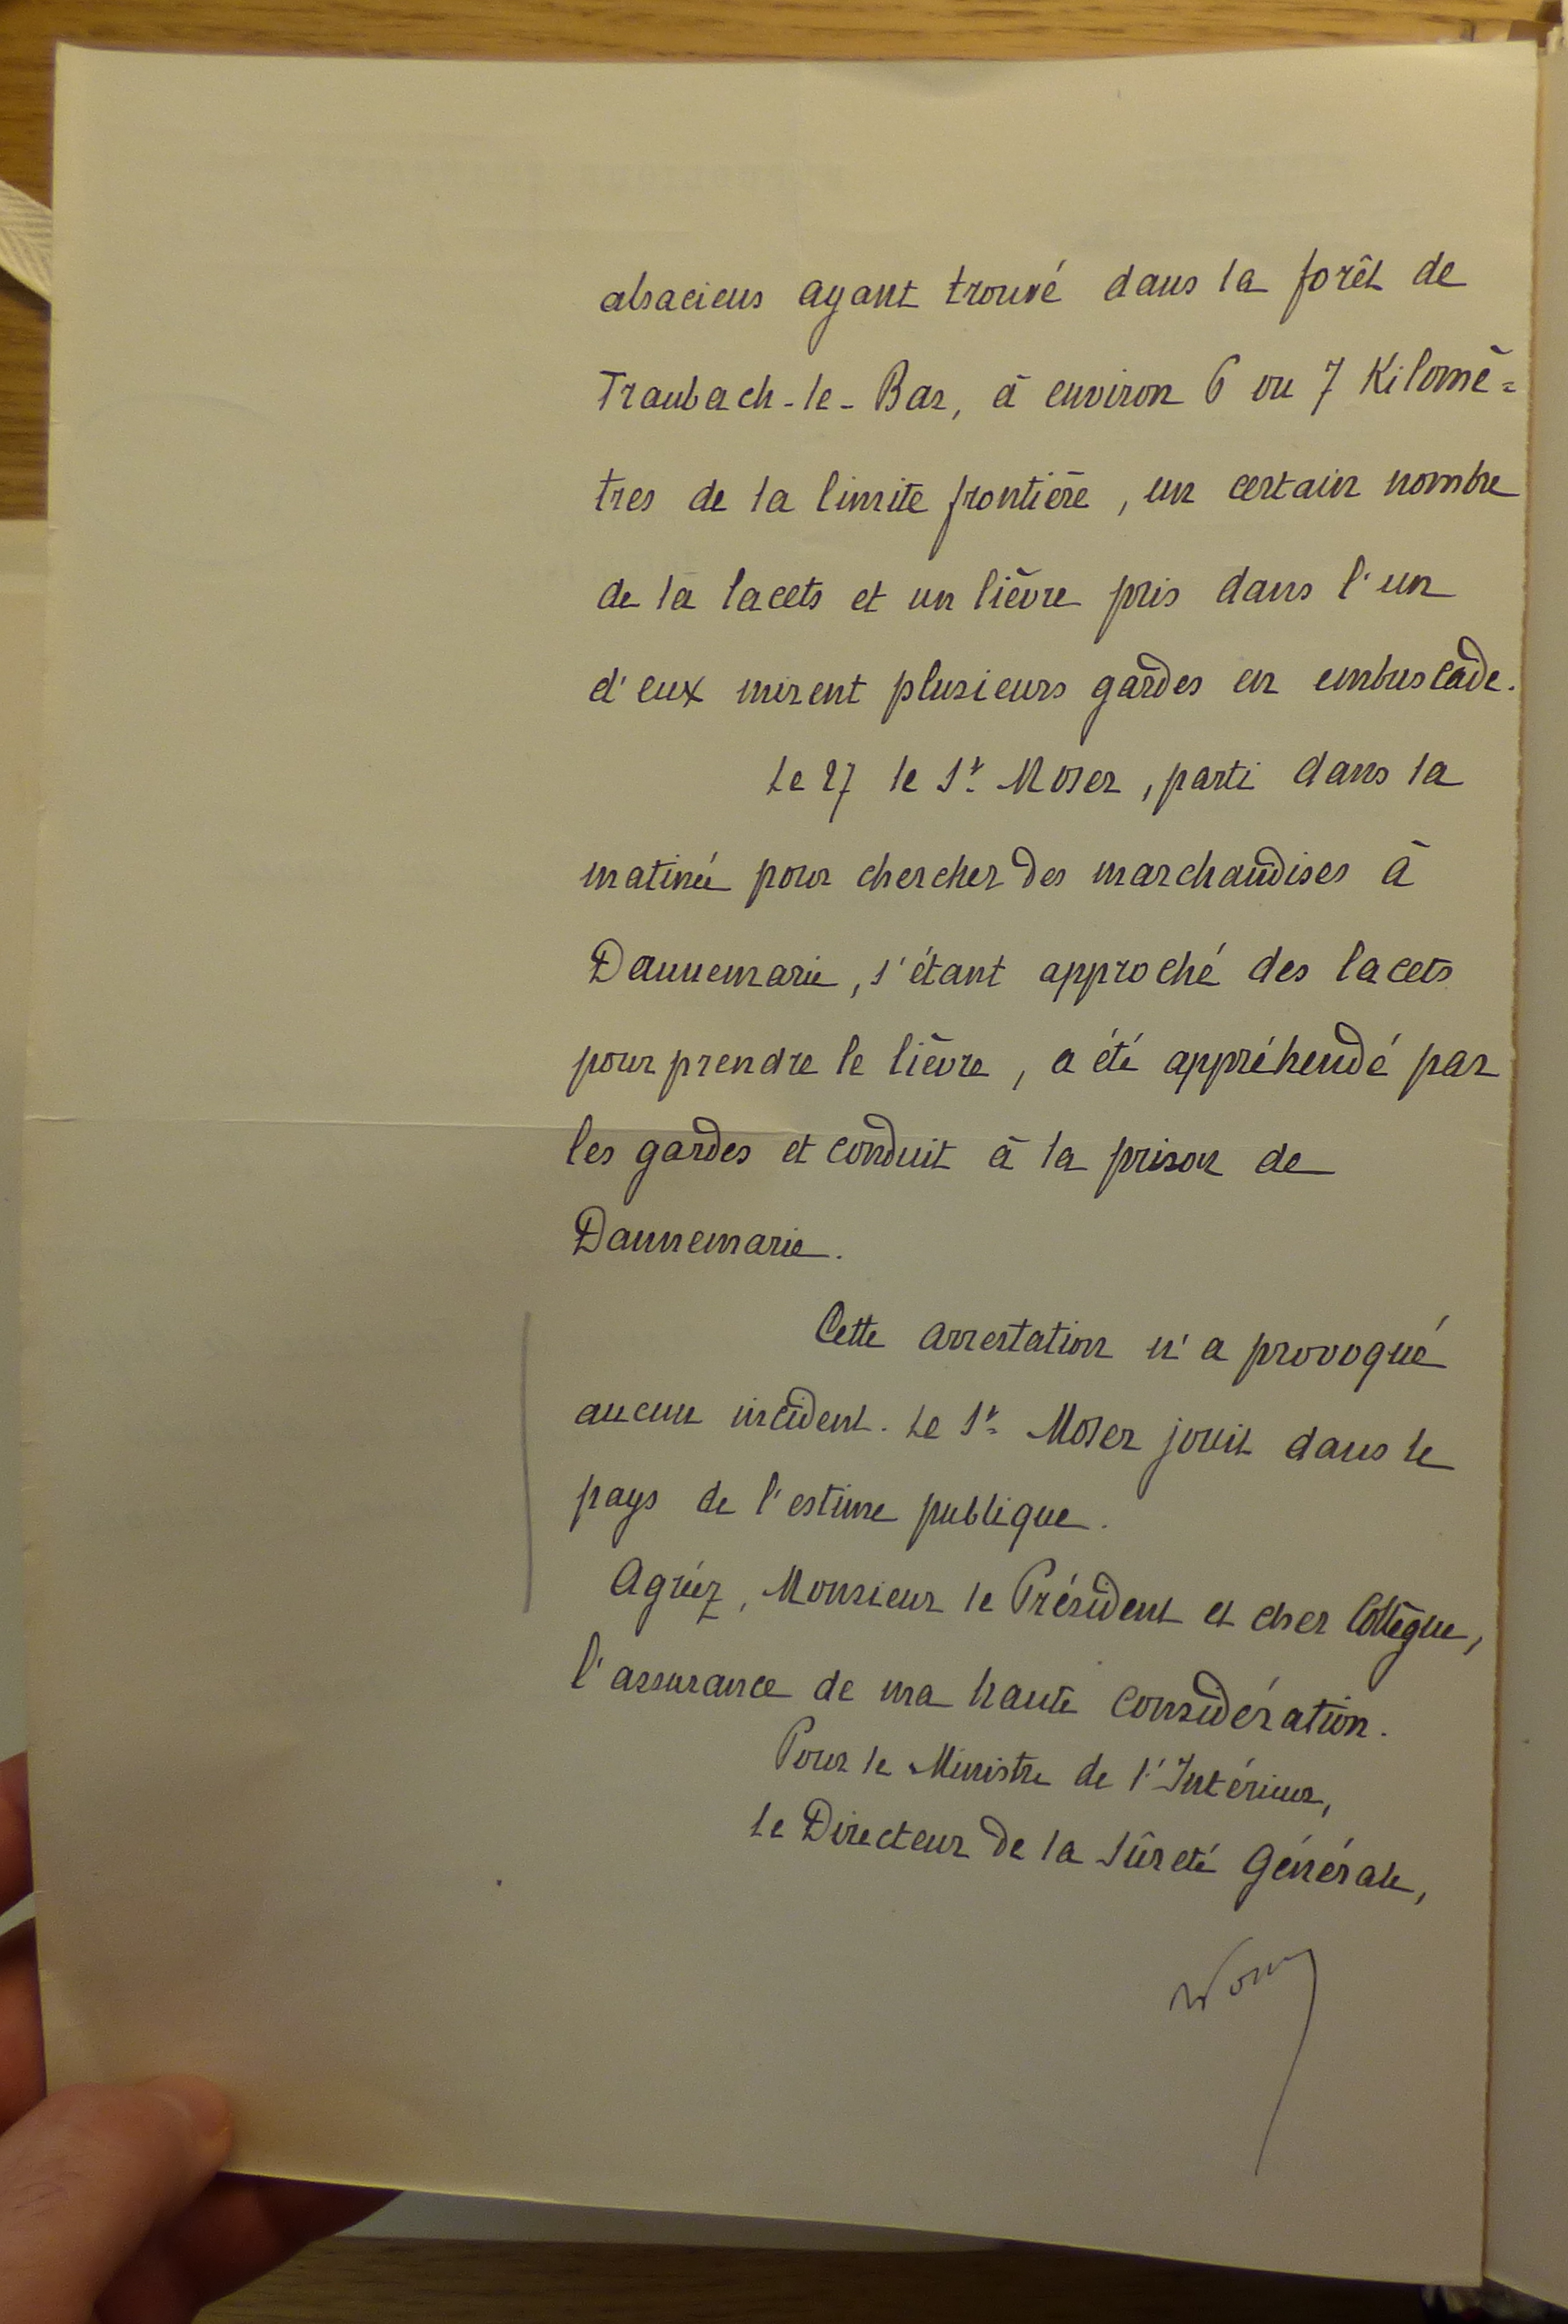 alsaciens ayant trouvé dans la forêt de
Traubach-le-Bas, à environ 6 ou 7 Kilomè=
tres de la limite frontière, un certain nombre
de la lacets et un lièvre pris dans l'un
d'eux mirent plusieurs gardes en embuscade.
Le 27 le Sr. Moser, parti dans la
matinée pour chercher des marchandises à
Dannemarie, s'étant approché des lacets
pour prendre le lièvre, a été appréhendé par
les gardes et conduit à la prison de
Dannemarie.
Cette arrestation n'a provoqué
aucun incident. Le Sr. Moser jouit dans le
pays de l'estime publique.
Agréez, Monsieur le Président et cher Collègue,
l'assurance de ma haute considération.
Pour le Ministre de l'Intérieur,
Le Directeur de la Sûreté Générale,